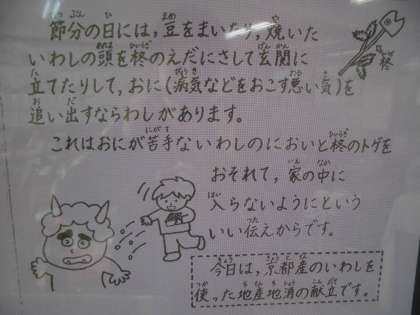 節分の日には,豆をまいたり,焼いた
いわしの頭を柊のえだにさして玄関に
立てたりして、おに(病気などをおこす悪い気)を
追い出すならわしがあります。
これはおにが苦手ないわしのにおいと柊のトゲを
おそれて,家の中に
入らないようにという
いい伝えからです。
今日は,京都産のいわしを
使った地産地消の献立です。
柊